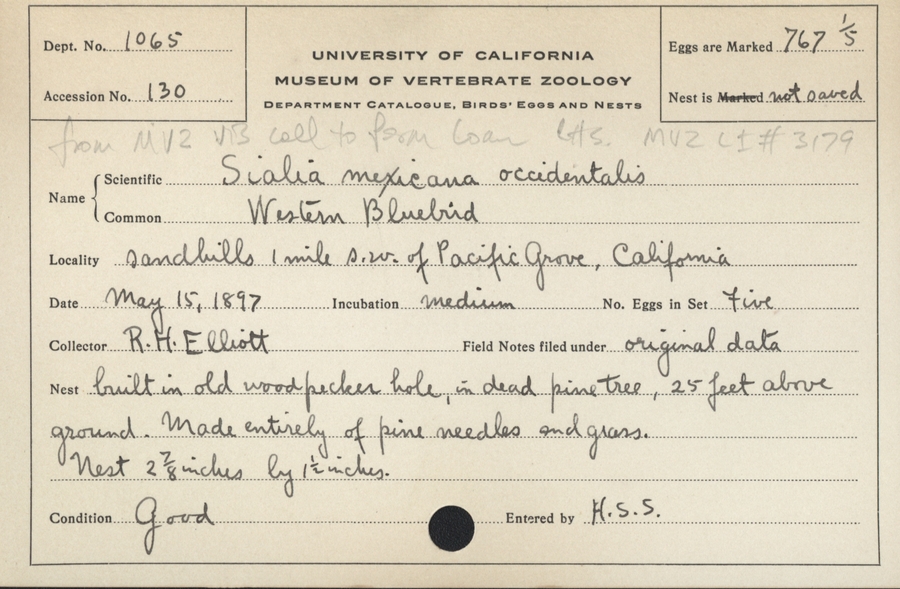 Dept. No. 1065
UNIVERSITY OF CALIFORNIA
MUSEUM OF VERTEBRATE ZOOLOGY
DEPARTMENT CATALOGUE, BIRDS' EGGS AND NESTS
Eggs are Marked 767 1/5
Accession No. 130
Nest is Marked not saved
from MVZ coll to from Loan MVZ LI # 3179
Name { Scientific Sialia mexicana occidentalis
Common Western Bluebird
Locality sandhills 1 mile s.w. of Pacific Grove, California
Date May 15, 1897 Incubation medium No. Eggs in Set Five
Collector R.H. Elliott Field Notes filed under original data
Nest built in old woodpecker hole, in dead pine tree, 25 feet above
ground. Made entirely of pine needles and grass.
Nest 2 7/8 inches by 1 1/2 inches.
Condition Good Entered by H.S.S.